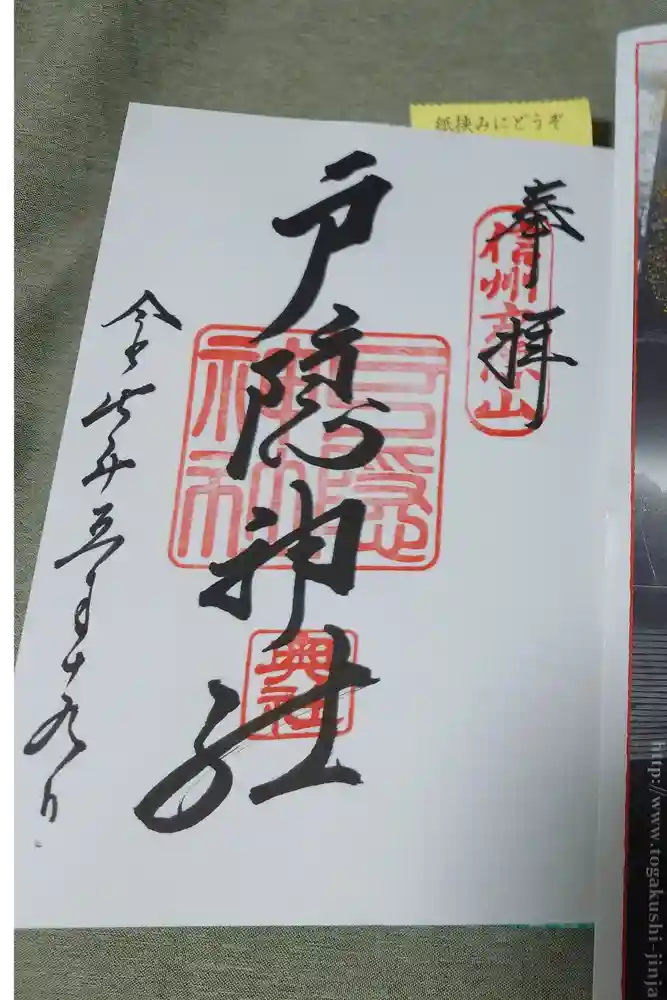 紙挟みにどうぞ
奉拝
信州
山
戸隠神社
戸隠
神社
奥社
令和 年五月十九日
http://www.togakushi-jinja